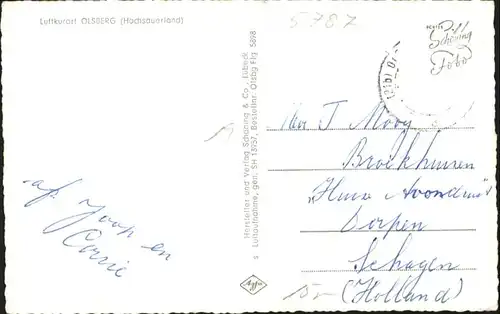 Luftkurort OLSBERG (Hochsauerland)
5787
ECHTES
Schöning
Foto
Hersteller und Verlag Schöning & Co., Lübeck
s Luftaufnahme, gen. SH 13/57, Besteller Olsbg Flg 5698
(21b) O
J Mooy
Broekhuisen
"Huize Avondrust"
Eorpen
Schagen
(Holland)
af. Joop en
Corrie
Agfa